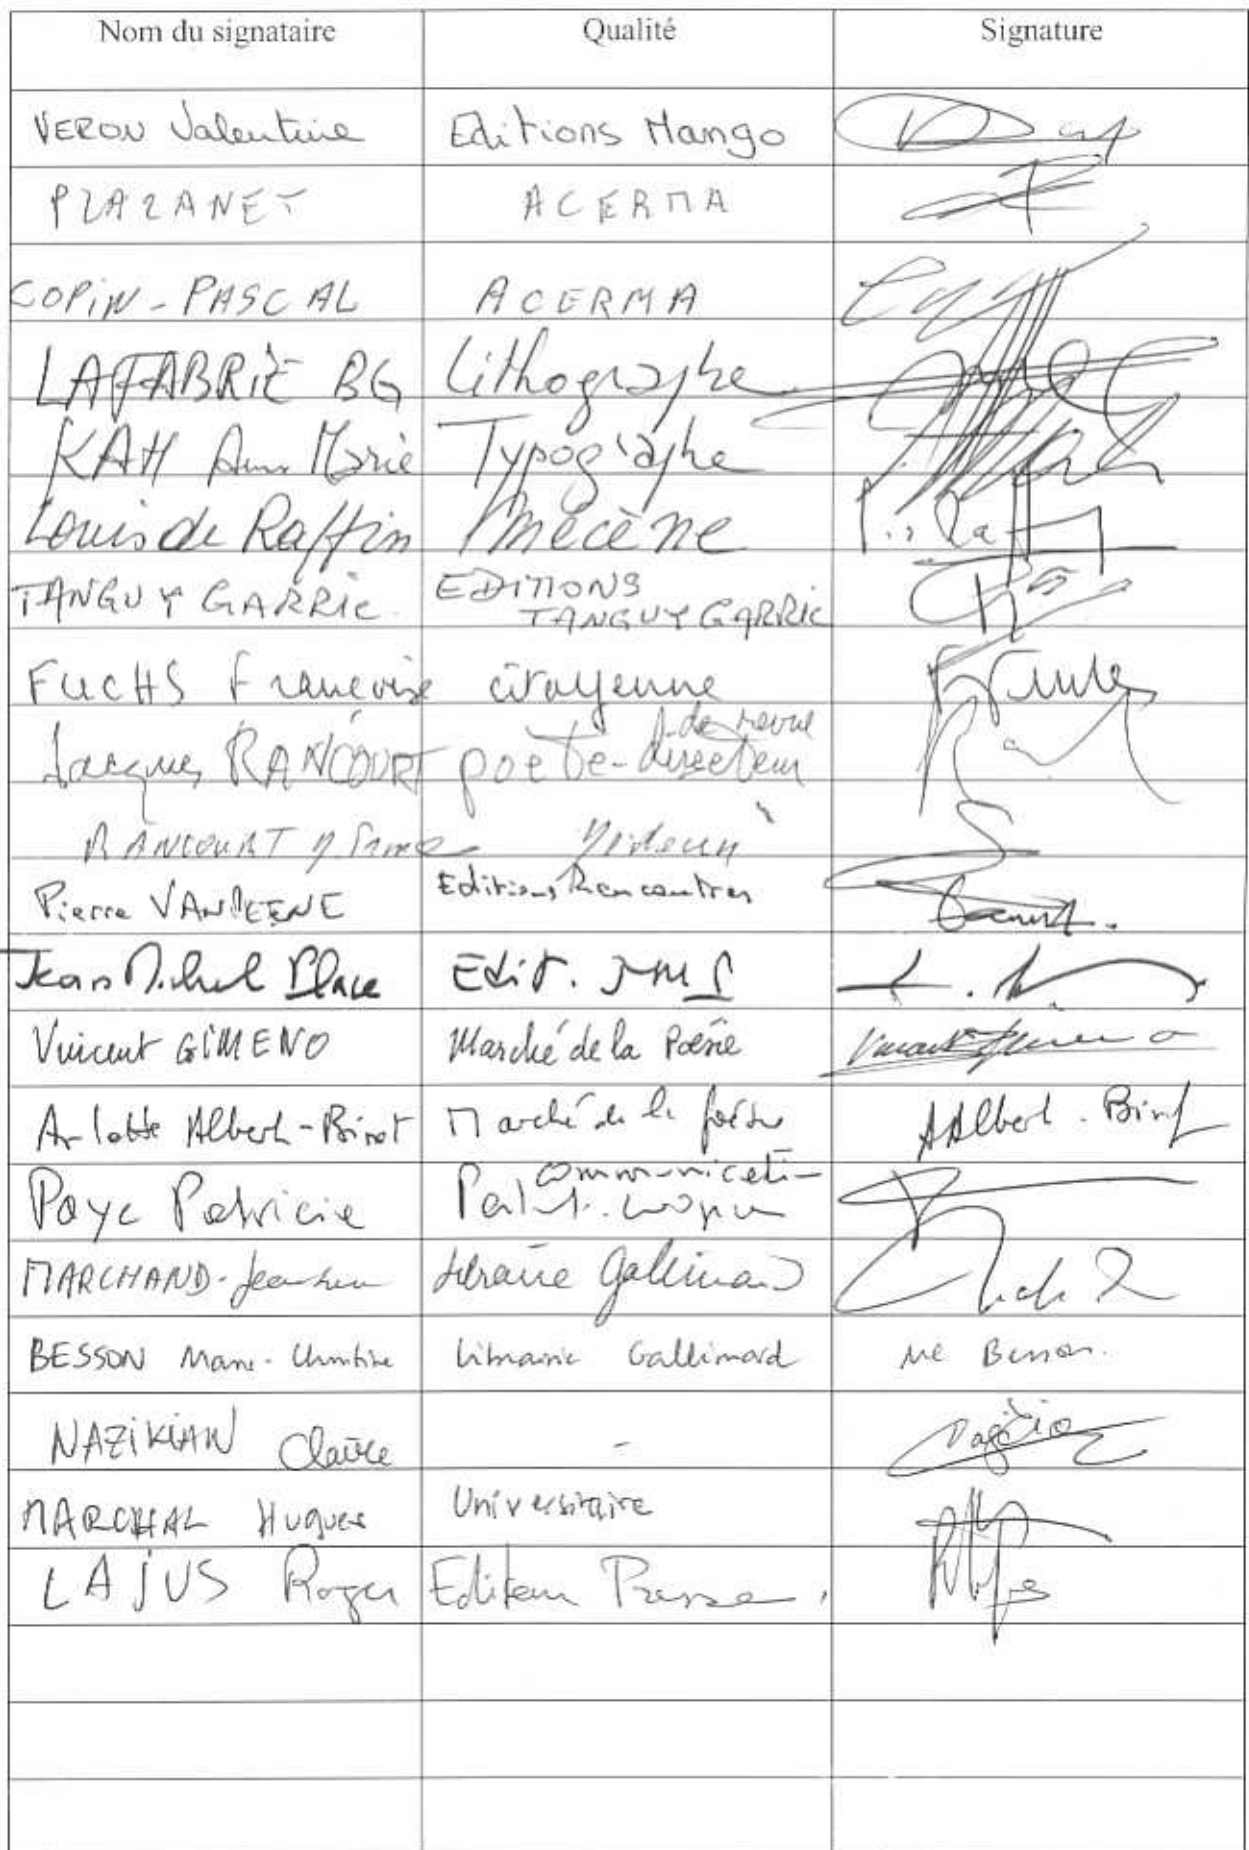 Nom du signataire Qualité Signature
VERON Valentine Editions Mango
PLAZANET ACERMA
COPIN-PASCAL ACERMA
LAFABRIE BG Lithographe
KAH Anne Marie Typographe
Louis de Raffin Mécène
TANGUY GARRIC EDITIONS
TANGUY GARRIC
FUCHS Françoise citoyenne
de revue
Jacques RANCOURT poète-directeur
RANCOURT
Pierre VANDEENE Editions Rencontres
Jean Michel Place Edit. JMP
Vincent GIMENO Marché de la Poésie Vincent Gimeno
Arlette Albert-Birot Marché de la poésie AAlbert-Birot
communication
Paye Patricie
MARCHAND- librairie Gallimard
BESSON Marie-Christine Librairie Gallimard MC Besson.
NAZIKIAN Claire -
MARCHAL Hugues Universitaire
LAJUS Roger Editeur Presse